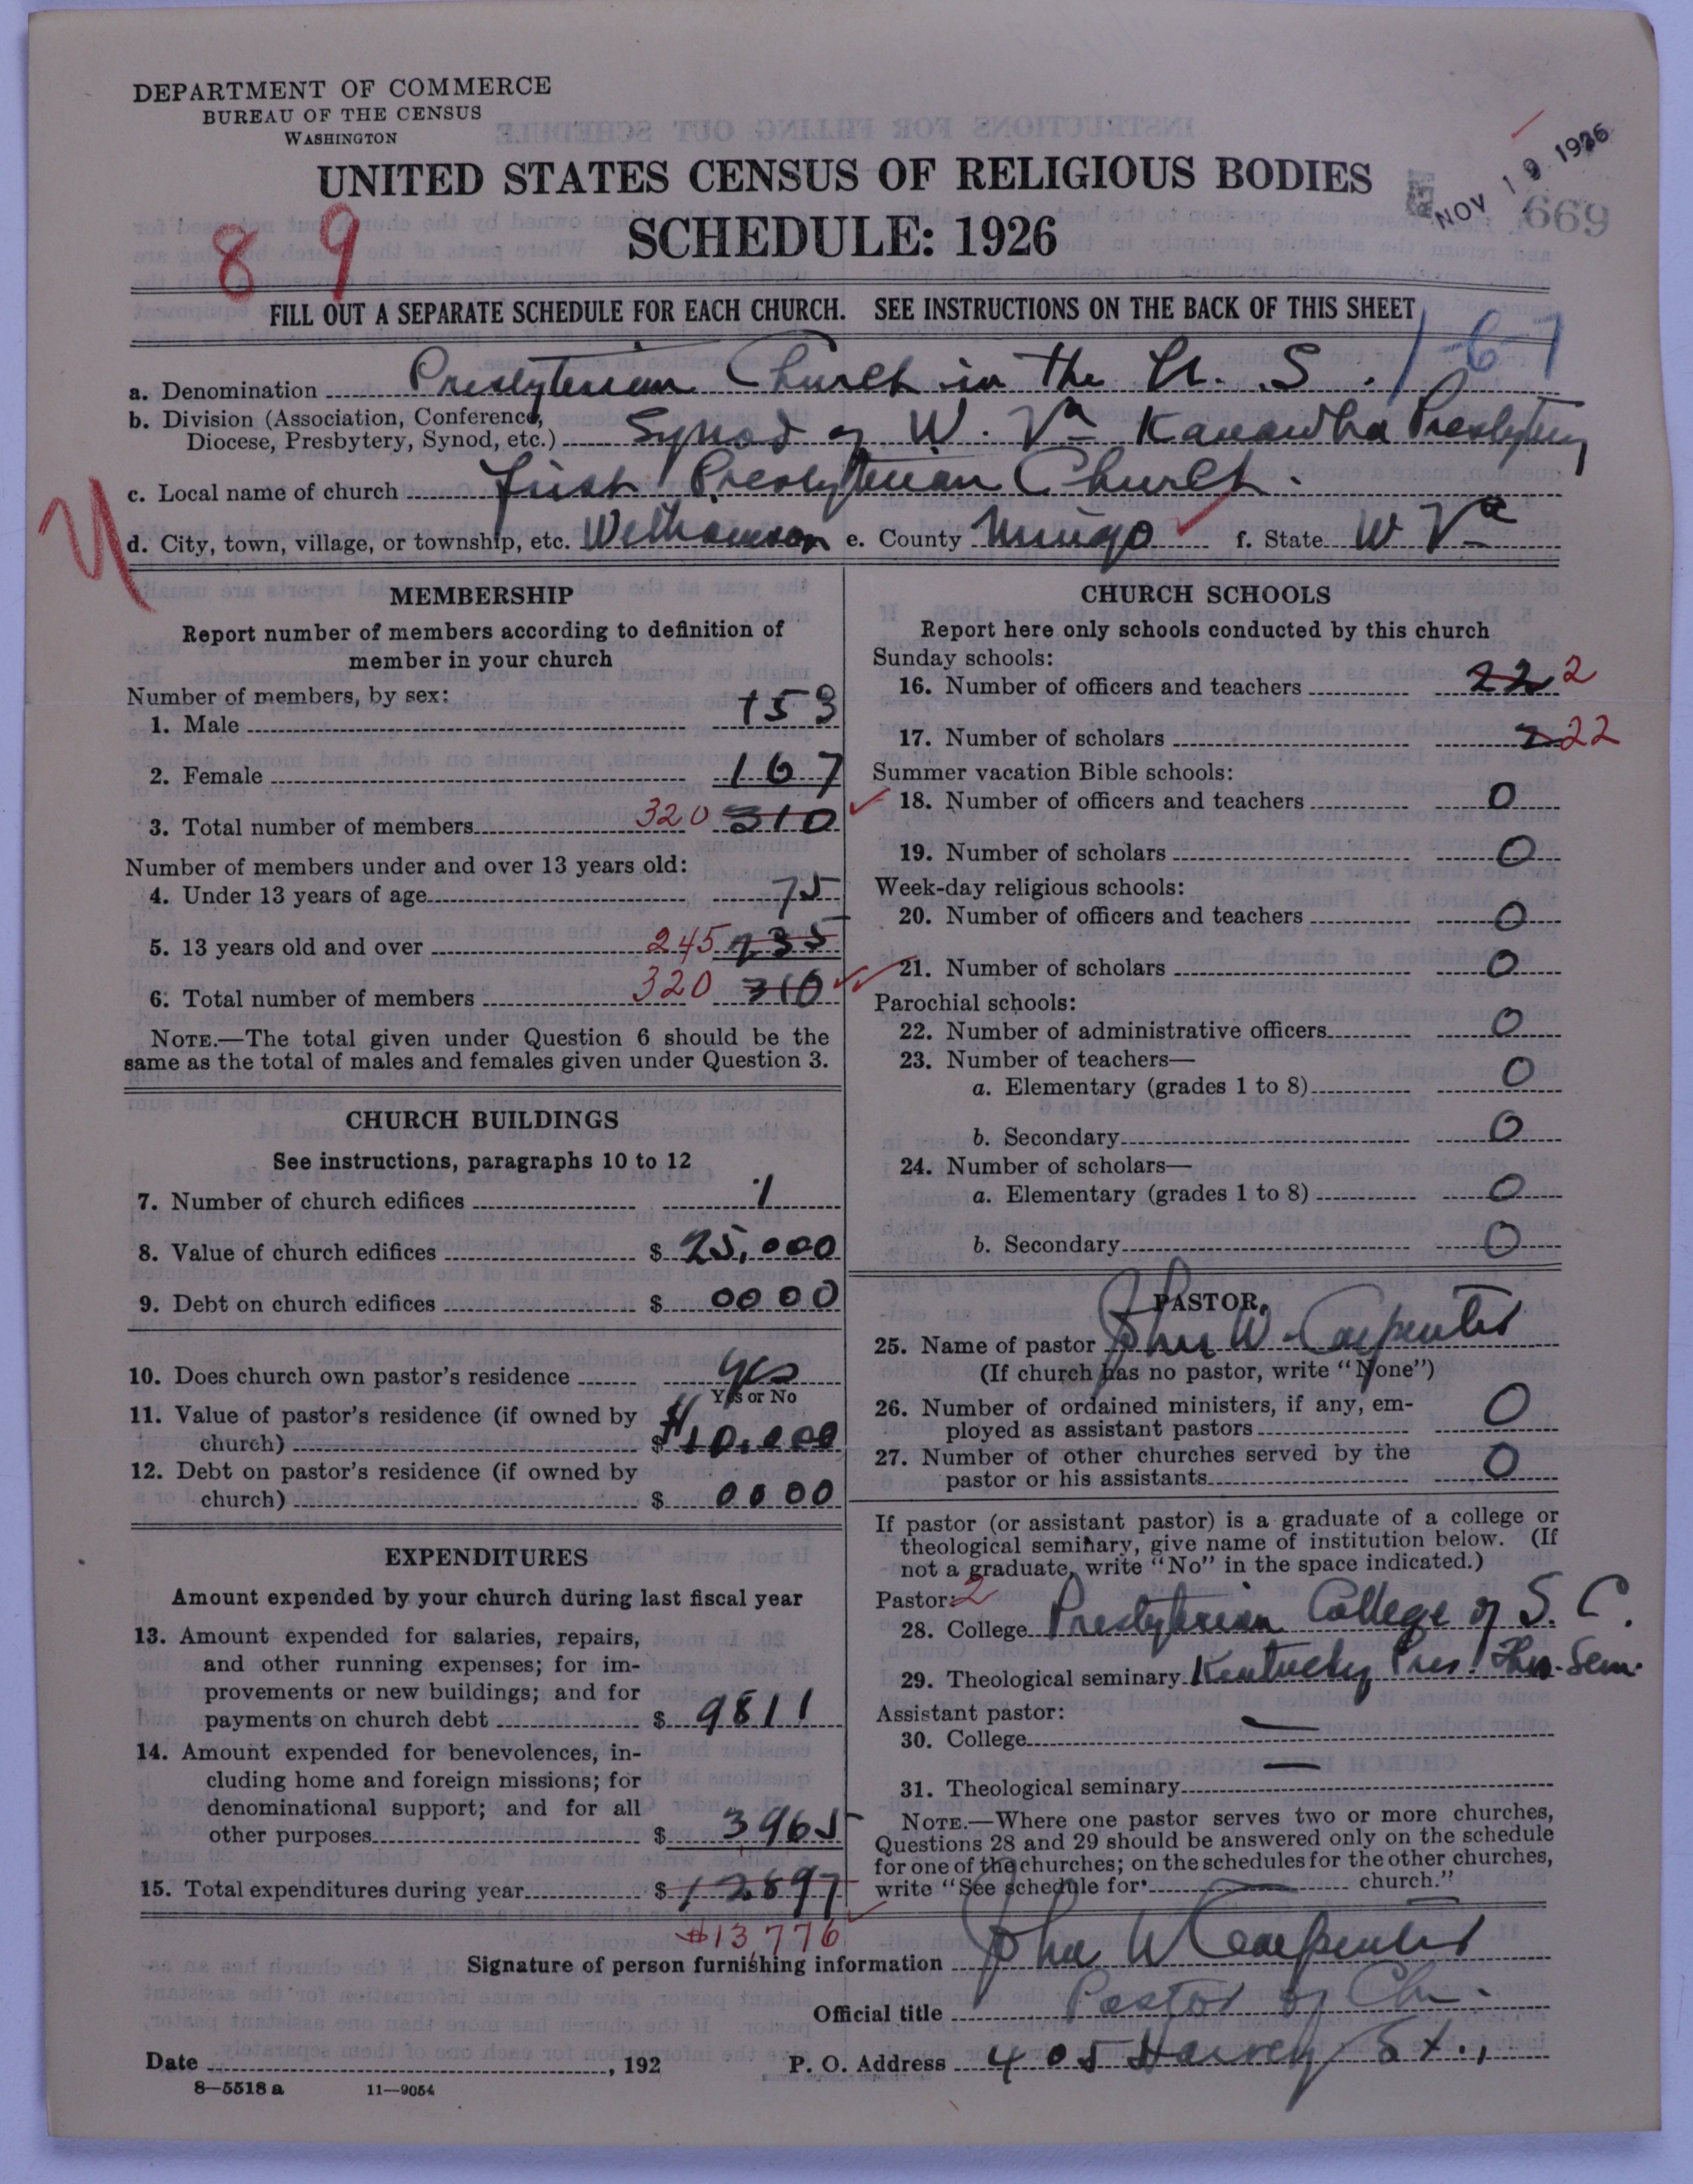 DEPARTMENT OF COMMERCE
BUREAU OF THE CENSUS
WASHINGTON
UNITED STATES CENSUS OF RELIGIOUS BODIES
SCHEDULE: 1926
NOV 19 1926
669
8 9
FILL OUT A SEPARATE SCHEDULE FOR EACH CHURCH. SEE INSTRUCTIONS ON THE BACK OF THIS SHEET
1-6-7
a. Denomination Presbyterian Church in the U. S.
b. Division (Association, Conference, Diocese, Presbytery, Synod, etc.) Synod of W. Va Kanawha Presbytery
c. Local name of church First Presbyterian Church.
d. City, town, village, or township, etc. Williamson e. County Mingo f. State W Va
MEMBERSHIP
Report number of members according to definition of
member in your church
Number of members, by sex:
1. Male 153
2. Female 167
3. Total number of members 320 310
Number of members under and over 13 years old:
4. Under 13 years of age 75
5. 13 years old and over 245 235
6. Total number of members 320 310
NOTE.—The total given under Question 6 should be the
same as the total of males and females given under Question 3.
CHURCH BUILDINGS
See instructions, paragraphs 10 to 12
7. Number of church edifices 1
8. Value of church edifices $ 25,000
9. Debt on church edifices $ 0000
10. Does church own pastor's residence yes
Yes or No
11. Value of pastor's residence (if owned by
church) $ $10,000
12. Debt on pastor's residence (if owned by
church) $ 0000
EXPENDITURES
Amount expended by your church during last fiscal year
13. Amount expended for salaries, repairs,
and other running expenses; for im-
provements or new buildings; and for
payments on church debt $ 9811
14. Amount expended for benevolences, in-
cluding home and foreign missions; for
denominational support; and for all
other purposes $ 3965
15. Total expenditures during year $ 12897
$13,776
CHURCH SCHOOLS
Report here only schools conducted by this church
Sunday schools:
16. Number of officers and teachers 22 2
17. Number of scholars 2 22
Summer vacation Bible schools:
18. Number of officers and teachers 0
19. Number of scholars 0
Week-day religious schools:
20. Number of officers and teachers 0
21. Number of scholars 0
Parochial schools:
22. Number of administrative officers 0
23. Number of teachers—
a. Elementary (grades 1 to 8) 0
b. Secondary 0
24. Number of scholars—
a. Elementary (grades 1 to 8) 0
b. Secondary 0
PASTOR
25. Name of pastor John W. Carpenter
(If church has no pastor, write "None")
26. Number of ordained ministers, if any, em-
ployed as assistant pastors 0
27. Number of other churches served by the
pastor or his assistants 0
If pastor (or assistant pastor) is a graduate of a college or
theological seminary, give name of institution below. (If
not a graduate, write "No" in the space indicated.)
Pastor: 2
28. College Presbyterian College of S. C.
29. Theological seminary Kentucky Pres. Theo. Sem.
Assistant pastor:
30. College —
31. Theological seminary —
NOTE.—Where one pastor serves two or more churches,
Questions 28 and 29 should be answered only on the schedule
for one of the churches; on the schedules for the other churches,
write "See schedule for — church."
Signature of person furnishing information John W Carpenter
Official title Pastor of Ch.
Date , 192 P. O. Address 405 Harvey St.,
8—5518 a 11—9054